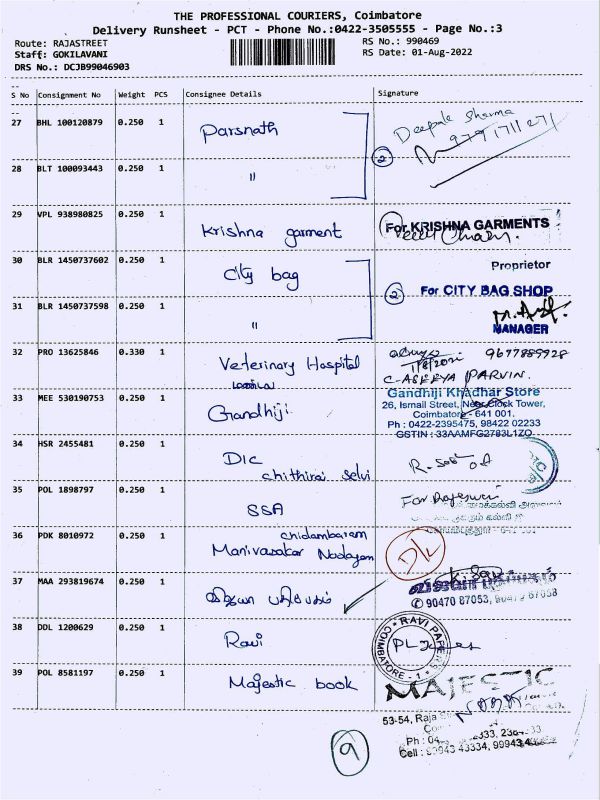 THE PROFESSIONAL COURIERS, Coimbatore
Delivery Runsheet - PCT - Phone No.:0422-3505555 - Page No.:3
Route: RAJASTREET
RS No.: 990469
Staff: GOKILAVANI
RS Date: 01-Aug-2022
DRS No.: DCJB99046903
S No Consignment No Weight PCS Consignee Details Signature
27 BHL 100120879 0.250 1 Parsnath Deepale Sharma
9791711271
②
28 BLT 100093443 0.250 1 "
29 VPL 938980825 0.250 1 Krishna garment For KRISHNA GARMENTS
Proprietor
30 BLR 1450737602 0.250 1 City bag
② For CITY BAG SHOP
31 BLR 1450737598 0.250 1 "
MANAGER
32 PRO 13625846 0.330 1 Veterinary Hospital 9677889928
1/8/2022
C-ASEEYA PARVIN.
33 MEE 530190753 0.250 1 Gandhiji Gandhiji Khadhar Store
26, Ismail Street, Near Clock Tower,
Coimbatore - 641 001.
Ph : 0422-2395475, 98422 02233
GSTIN : 33AAMFG2783L1ZO
34 HSR 2455481 0.250 1 DIC
chithirai selvi
35 POL 1898797 0.250 1 SSA For Rajeswari
36 PDK 8010972 0.250 1 chidambaram
Manivasakar Noolagam D/L
37 MAA 293819674 0.250 1 விஜயா பதிப்பகம்
✆ 90470 87053, 90471 67058
38 DDL 1200629 0.250 1 Ravi RAVI PAPERS
COIMBATORE - 1
39 POL 8581197 0.250 1 Majestic book MAJESTIC
53-54, Raja
Cell : 43334, 99943
⑨